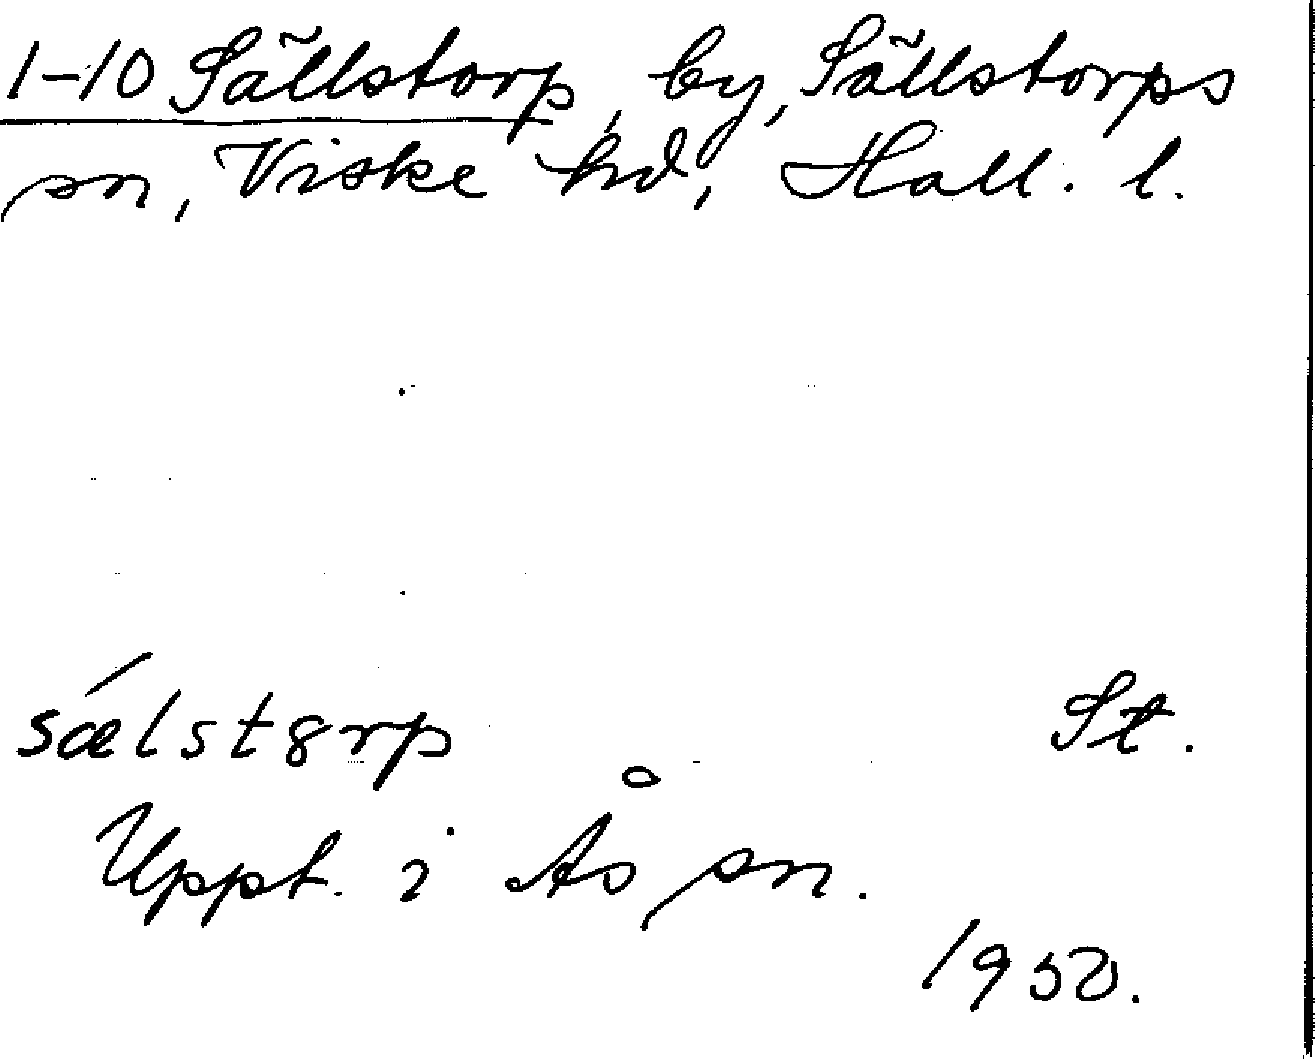 1-10 Sällstorp, by, Sällstorps
sn, Viske hd, Hall. l.
sǽlstȣrp St.
Uppt. i Ås sn.
1950.